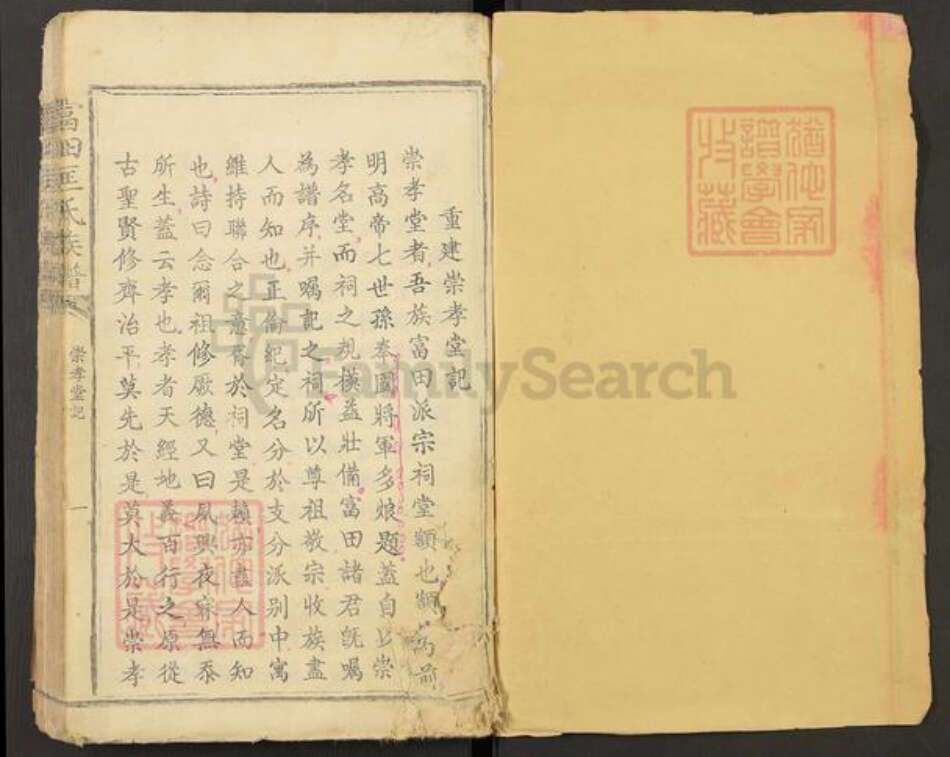 重建崇孝堂記
崇孝堂者吾族富田派宗祠堂額也額為前
明高帝七世孫奉國將軍多煃題蓋自以崇
孝名堂而祠之規模益壯備富田諸君既囑
為譜序并囑記之祠所以尊祖敬宗收族盡
人而知也正倫紀定名分於支分派別中寓
維持聯合之意胥於祠堂是賴亦盡人而知
也詩曰念爾祖修厥德又曰夙興夜寐無忝
所生蓋云孝也孝者天經地義百行之原從
古聖賢修齊治平莫先於是莫大於是崇孝
富田匡氏族譜
崇孝堂記
一
猶他家
譜學會
收藏
猶他家
譜學會
收藏
FamilySearch